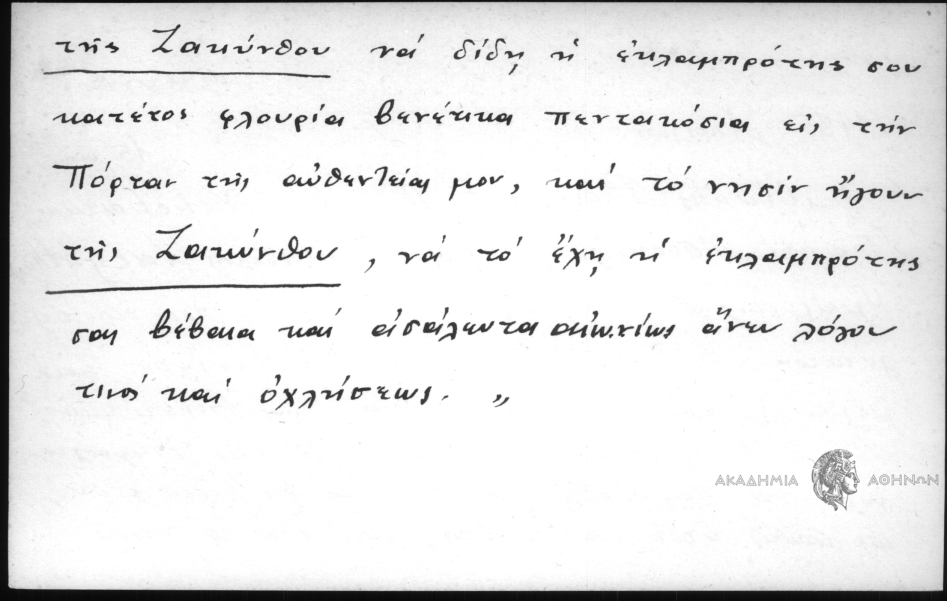 τῆς Ζακύνθου νά δίδῃ ἡ ἐκλαμπρότης σου
κατέτος φλουρία βενέτικα πεντακόσια εἰς τήν
Πόρταν τῆς αὐθεντείας μου, καί τό νησίν ἤγουν
τῆς Ζακύνθου, νά τό ἔχῃ ἡ ἐκλαμπρότης
σας βέβαια καί ἀσάλευτα αἰωνίως ἄνευ λόγου
τινός καί ὀχλήσεως. „
ΑΚΑΔΗΜΙΑ ΑΘΗΝΩΝ